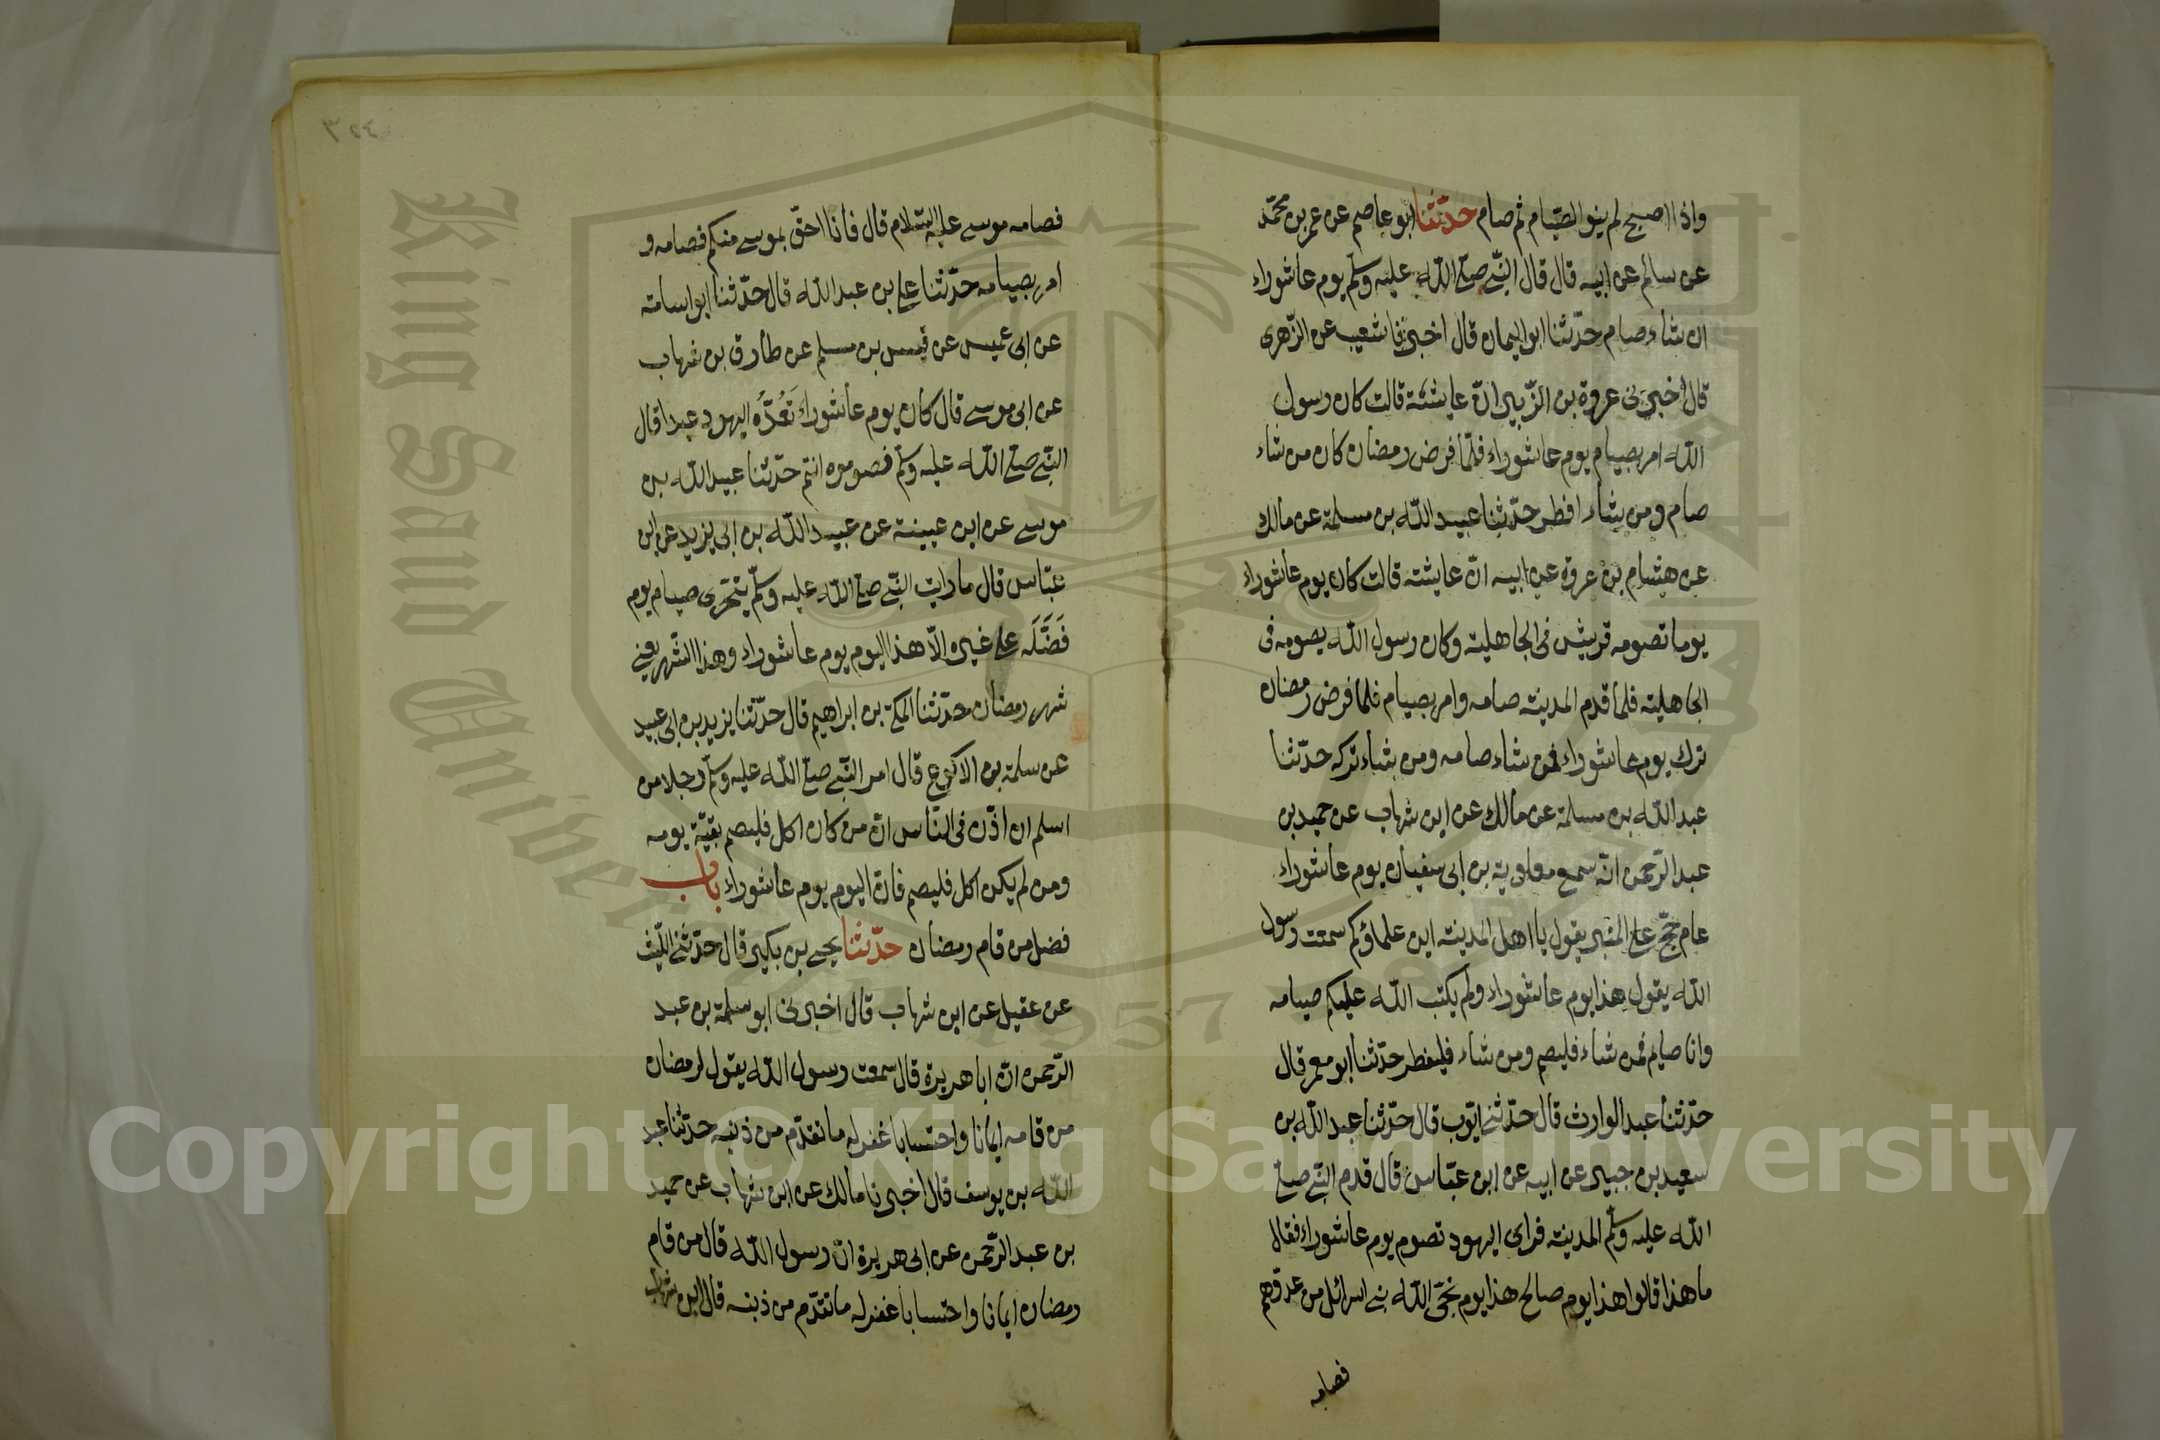 واذا اصبح لم ينو الصّيام ثم صام حدّثنا ابو عاصم عن عمر بن محمّد
عن سالم عن ابيه قال قال النّبي صلى الله عليه وسلّم يوم عاشوراء
ان شاء صام حدّثنا ابو اليمان قال اخبرنا شعيب عن الزّهرى
قال اخبرنى عروة بن الزّبير انّ عايشة قالت كان رسول
الله امر بصيام يوم عاشوراء فلمّا فرض رمضان كان من شاء
صام ومن شاء افطر حدّثنا عبيد الله بن مسلمة عن مالك
عن هشام بن عروة عن ابيه انّ عايشة قالت كان يوم عاشوراء
يوما تصومه قريش فى الجاهلية وكان رسول الله يصومه فى
الجاهلية فلما قدم المدينة صامه وامر بصيام فلما فرض رمضان
ترك يوم عاشوراء فمن شاء صامه ومن شاء تركه حدّثنا
عبد الله بن مسلمة عن مالك عن ابن شهاب عن حميد بن
عبد الرّحمن انّه سمع معاوية بن ابى سفيان يوم عاشوراء
عام حجّ على المنبر يقول يا اهل المدينة اين علماؤكم سمعت رسول
الله يقول هذا يوم عاشوراء ولم يكتب الله عليكم صيامه
وانا صايم فمن شاء فليصم ومن شاء فليفطر حدّثنا ابو معمر قال
حدّثنا عبد الوارث قال حدّثنى ايّوب قال حدّثنا عبد الله بن
سعيد بن جبير عن ابيه عن ابن عبّاس قال قدم النّبي صلى
الله عليه وسلّم المدينة فراى اليهود تصوم يوم عاشوراء فقال
ما هذا قالوا هذا يوم صالح هذا يوم نجّى الله بنى اسرائل من عدوّهم
فصامه
فصامه موسى عليه السّلام قال فانا احقّ بموسى منكم فصامه و
امر بصيامه حدّثنا على بن عبد الله قال حدّثنا ابو اسامة
عن ابى عميس عن قيس بن مسلم عن طارق بن شهاب
عن ابى موسى قال كان يوم عاشوراء تَعُدُّه اليهود عيدا قال
النّبي صلى الله عليه وسلّم فصوموه انتم حدّثنا عبيد الله بن
موسى عن ابن عيينة عن عبيد الله بن ابى يزيد عن ابن
عبّاس قال ما رايت النّبي صلى الله عليه وسلّم يتحرّى صيام يوم
فَضَّلَه على غيره الّا هذا اليوم يوم عاشوراء وهذا الشّهر يعنى
شهر رمضان حدّثنا المكىّ بن ابراهيم قال حدّثنا يزيد بن ابى عبيد
عن سلمة بن الاكوع قال امر النّبي صلى الله عليه وسلّم رجلا من
اسلم ان اذّن فى النّاس انّ من كان اكل فليصم بقيّة يومه
ومن لم يكن اكل فليصم فانّ اليوم يوم عاشوراء باب
فضل من قام رمضان حدّثنا يحيى بن بكير قال حدّثنى اللّيث
عن عقيل عن ابن شهاب قال اخبرنى ابو سلمة بن عبد
الرّحمن انّ ابا هريرة قال سمعت رسول الله يقول لرمضان
من قامه ايمانا واحتسابا غفر له ما تقدّم من ذنبه حدّثنا عبد
الله بن يوسف قال اخبرنا مالك عن ابن شهاب عن حميد
بن عبد الرّحمن عن ابى هريرة انّ رسول الله قال من قام
رمضان ايمانا واحتسابا غفر له ما تقدّم من ذنبه قال ابن شهاب
King Saud University
1957
Copyright © King Saud University